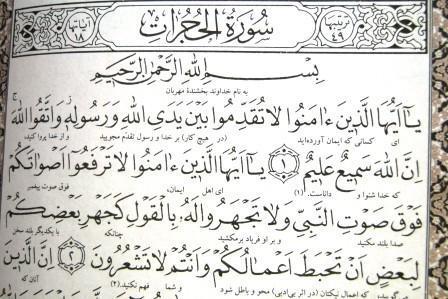 ترتیبها ۴۹ سُورَةُ الحُجُرَاتِ آیاتها ۱۸
بِسْمِ اللهِ الرَّحْمٰنِ الرَّحِيمِ
به نام خداوند بخشندهٔ مهربان
يَٓا اَيُّهَا الَّذِينَ ءَامَنُوا لَا تُقَدِّمُوا بَيْنَ يَدَىِ اللهِ وَرَسُولِهِ وَاتَّقُوا اللهَ
ای کسانی که ایمان آورده‌اید (در هیچ کار) بر خدا و رسول تقدم مجویید و از خدا پروا کنید،
اِنَّ اللهَ سَمِيعٌ عَلِيمٌ ۱ يَٓا اَيُّهَا الَّذِينَ ءَامَنُوا لَا تَرْفَعُٓوا اَصْوَاتَكُمْ
که خدا شنوا و داناست. (۱) ای اهل ایمان، فوق صوت پیغمبر
فَوْقَ صَوْتِ النَّبِىِّ وَلَا تَجْهَرُوا لَهُ بِالْقَوْلِ كَجَهْرِ بَعْضِكُمْ
صدا بلند مکنید و بر او فریاد برمکشید چنانکه با یکدیگر بلند سخن
لِبَعْضٍ اَنْ تَحْبَطَ اَعْمَالُكُمْ وَاَنْتُمْ لَا تَشْعُرُونَ ۲ اِنَّ الَّذِينَ
می‌گویید که اعمال نیکتان (در اثر بی‌ادبی) محو و باطل شود و شما فهم نکنید. (۲) آنان که